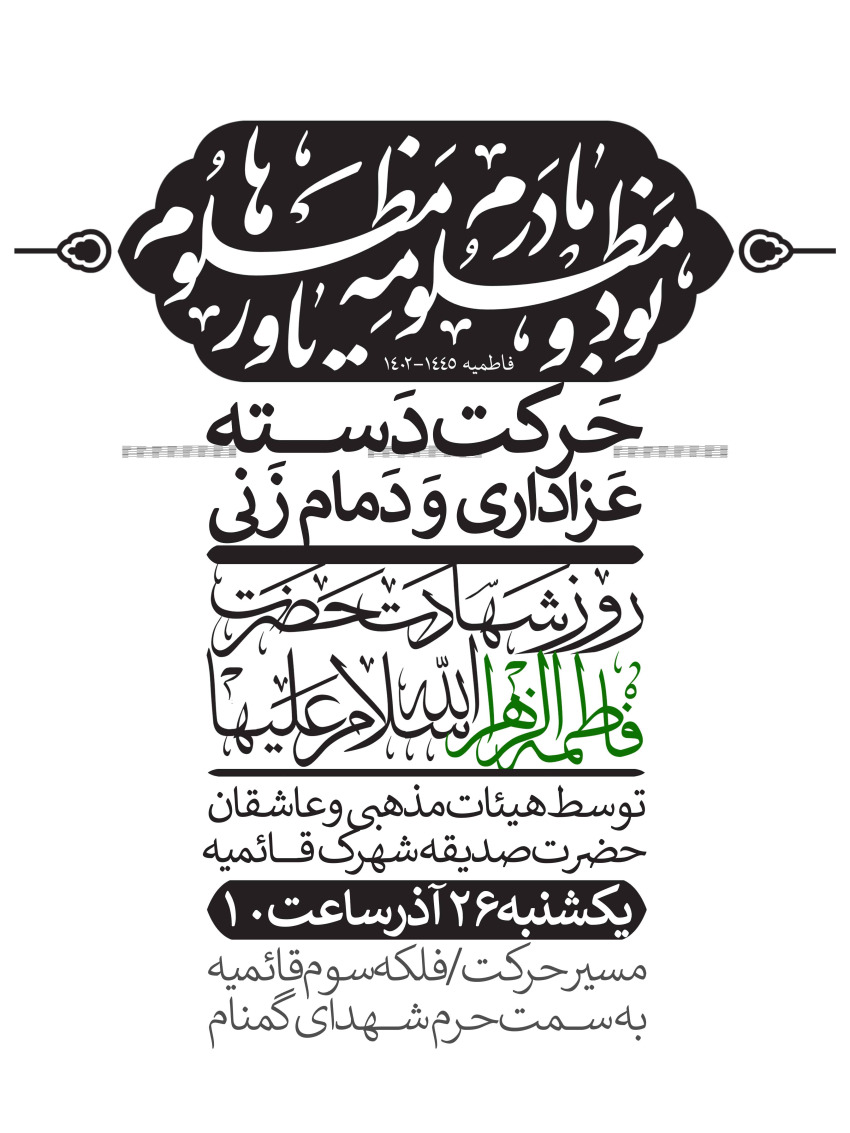 مادرم مظلومه بود و یاور مظلوم‌ها
فاطمیه ۱٤٤٥-۱٤۰۲
حَرکت دَسـته
عَزاداری وَ دَمام زَنی
روز شهادت حضرت
فاطمه الزهرا سلام الله علیها
توسط هیئات مذهبی و عاشقان
حضرت صدیقه شهرک قـائمیه
یکشنبه ۲۶ آذر ساعت ۱۰
مسیر حرکت/فلکه سوم قائمیه
به سـمت حرم شـهدای گمنام